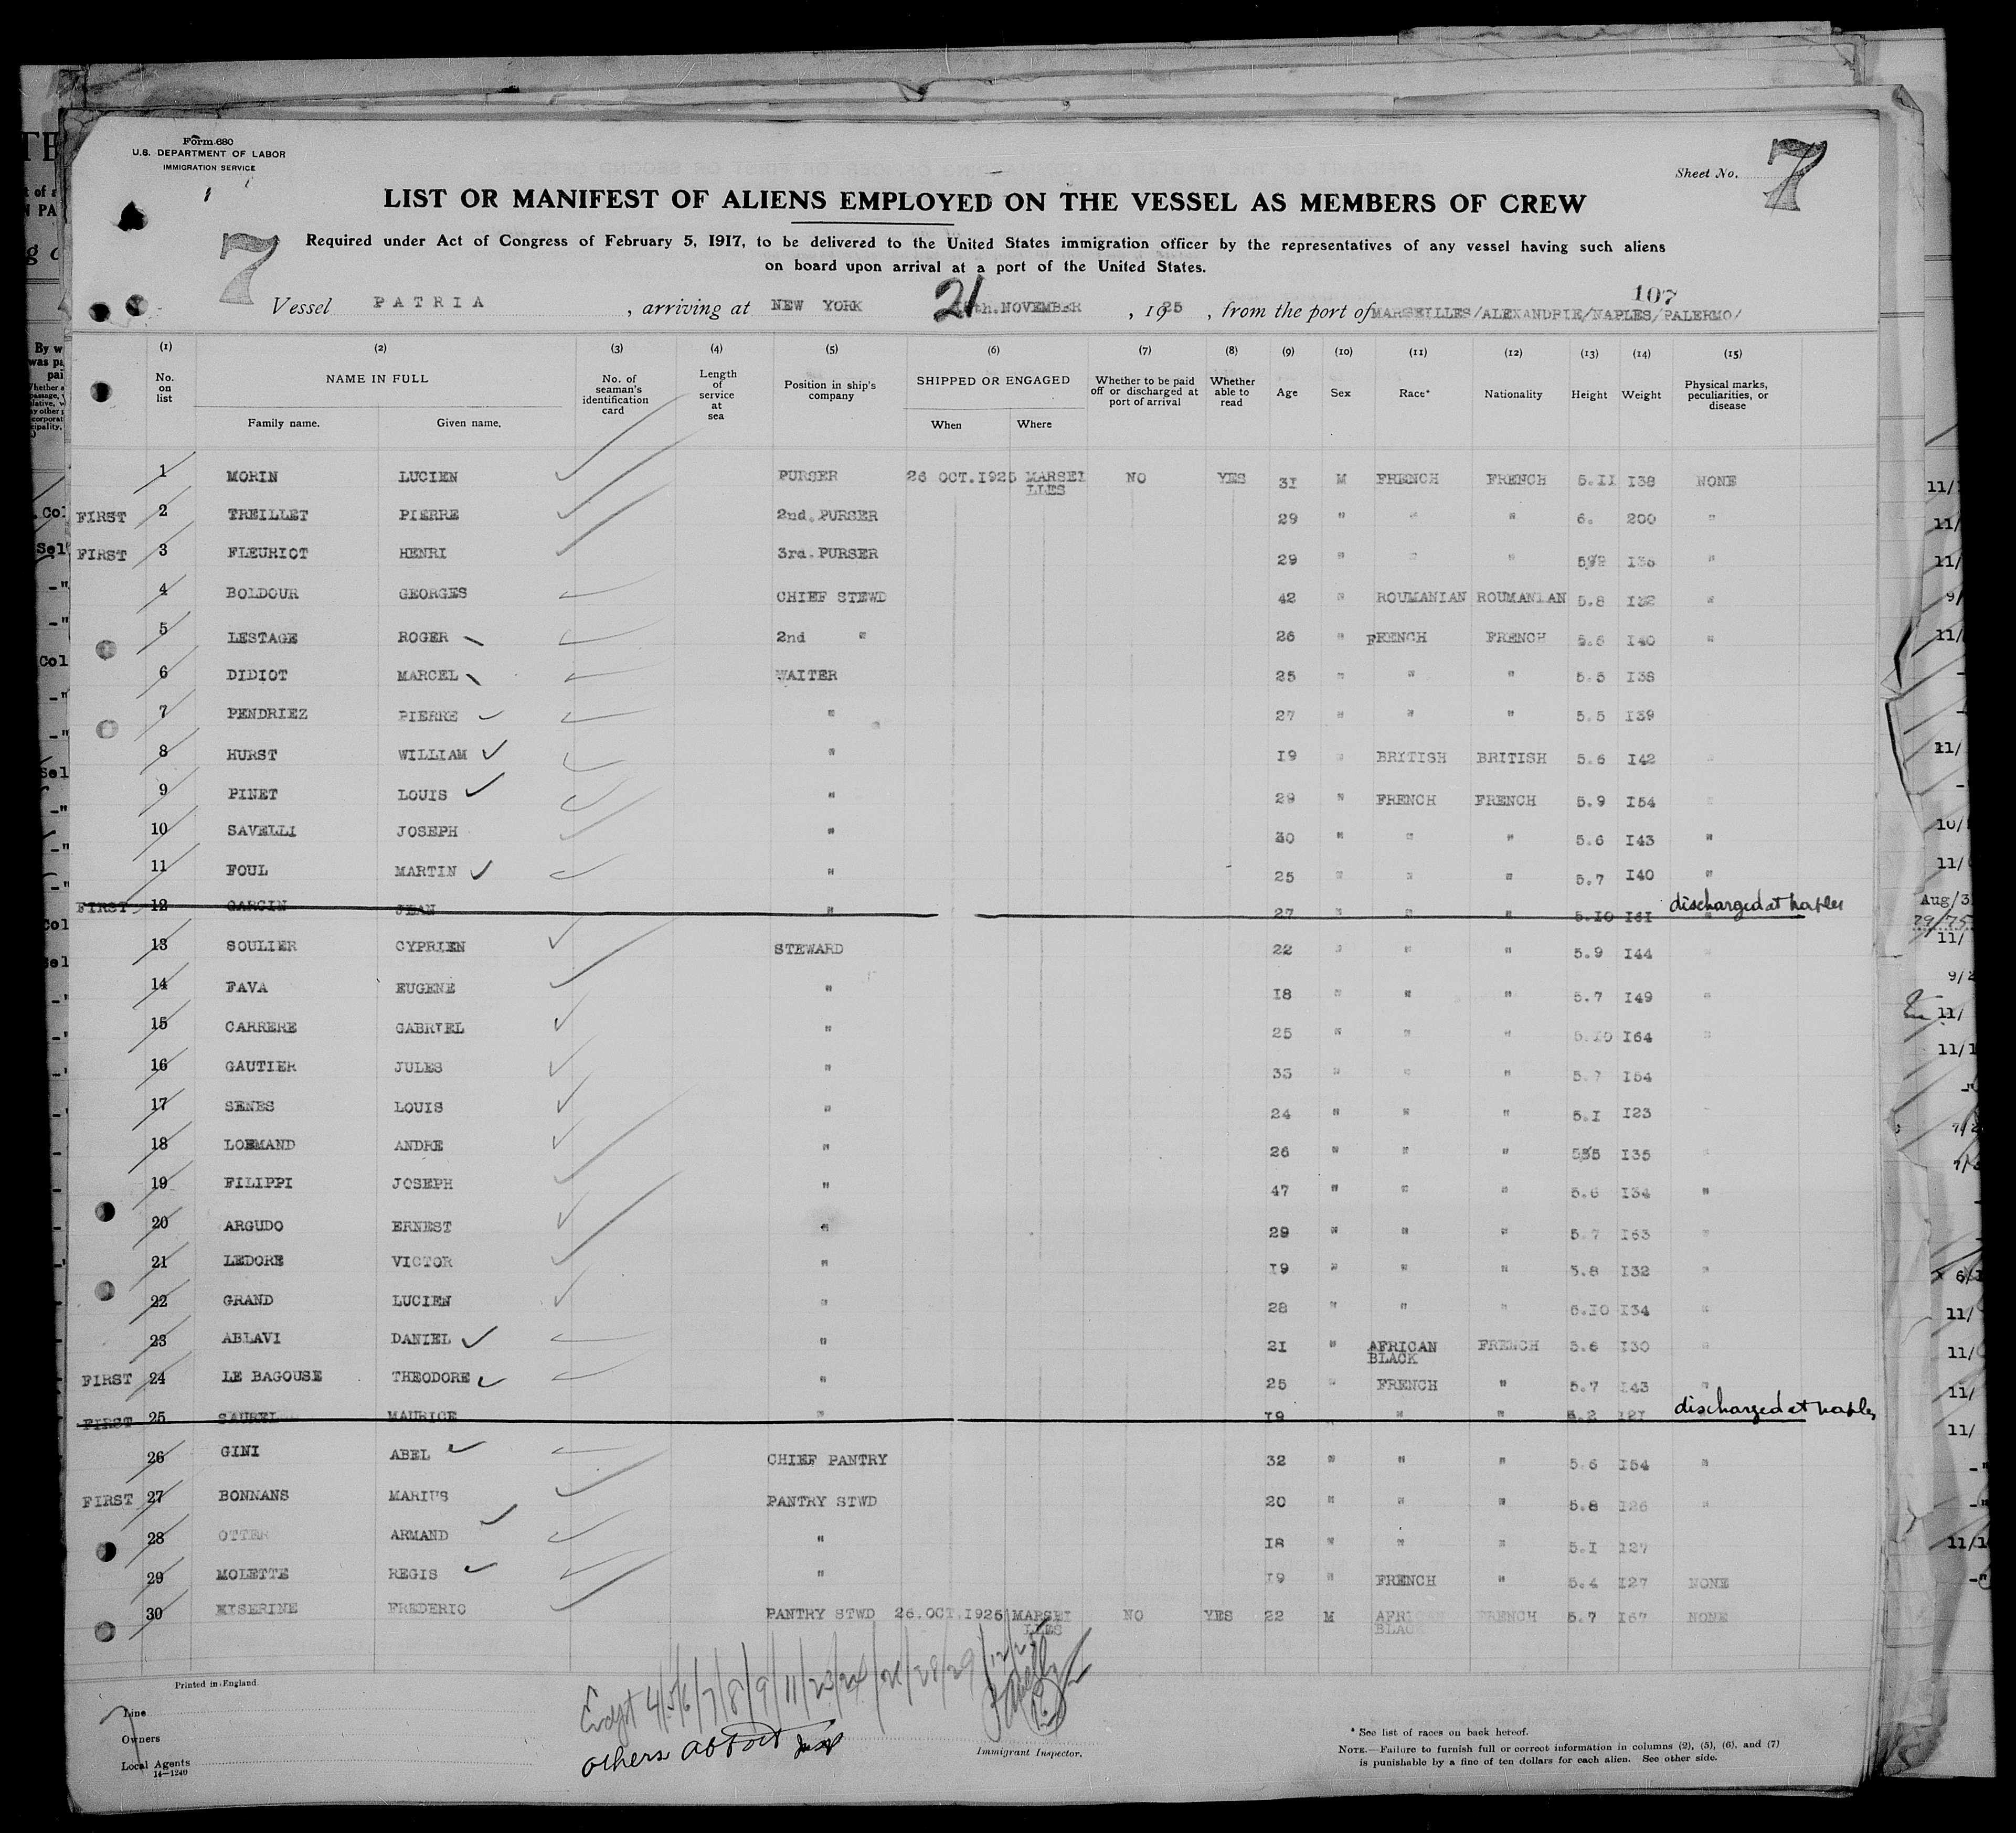 Form 680
U.S. DEPARTMENT OF LABOR
IMMIGRATION SERVICE
Sheet No. 7
LIST OR MANIFEST OF ALIENS EMPLOYED ON THE VESSEL AS MEMBERS OF CREW
7
Required under Act of Congress of February 5, 1917, to be delivered to the United States immigration officer by the representatives of any vessel having such aliens
on board upon arrival at a port of the United States.
107
Vessel PATRIA , arriving at NEW YORK 21 th.NOVEMBER , 1925 , from the port of MARSEILLES/ALEXANDRIE/NAPLES/PALERMO/
(1) (2) (3) (4) (5) (6) (7) (8) (9) (10) (11) (12) (13) (14) (15)
No. on list NAME IN FULL Family name. Given name. No. of seaman's identification card Length of service at sea Position in ship's company SHIPPED OR ENGAGED When Where Whether to be paid off or discharged at port of arrival Whether able to read Age Sex Race* Nationality Height Weight Physical marks, peculiarities, or disease
1 MORIN LUCIEN PURSER 26 OCT.1925 MARSEI LLES NO YES 31 M FRENCH FRENCH 5.11 138 NONE
FIRST 2 TREILLET PIERRE 2nd.PURSER 29 " " " 6. 200 "
FIRST 3 FLEURIOT HENRI 3rd.PURSER 29 " " " "
4 BOLDOUR GEORGES CHIEF STEWD 42 " ROUMANIAN ROUMANIAN 5.8 132 "
5 LESTAGE ROGER 2nd " 26 " FRENCH FRENCH 5.6 140 "
6 DIDIOT MARCEL WAITER 25 " " " 5.5 138
7 PENDRIEZ PIERRE " 27 " " " 5.5 139
8 HURST WILLIAM " 19 " BRITISH BRITISH 5.6 142 "
9 PINET LOUIS " 29 " FRENCH FRENCH 5.9 154 "
10 SAVELLI JOSEPH " 30 " " " 5.6 143 "
11 FOUL MARTIN " 25 " " " 5.7 140 "
FIRST 12 GARCIN JEAN " 27 " " " 5.10 161 " discharged at naples
13 SOULIER CYPRIEN STEWARD 22 " " " 5.9 144 "
14 FAVA EUGENE " 18 " " " 5.7 149 "
15 CARRERE GABRIEL " 25 " " " 5.10 164 "
16 GAUTIER JULES " 33 " " " 5.7 154
17 SENES LOUIS " 24 " " " 5.1 123
18 LOEMAND ANDRE " 26 " " " 135 "
19 FILIPPI JOSEPH " 47 " " " 5.6 134 "
20 ARGUDO ERNEST " 29 " " " 5.7 163 "
21 LEDORE VICTOR " 19 " " " 5.8 132 "
22 GRAND LUCIEN " 28 " " " 5.10 134 "
23 ABLAVI DANIEL " 21 " AFRICAN BLACK FRENCH 5.6 130 "
FIRST 24 LE BAGOUSE THEODORE " 25 " FRENCH " 5.7 143 "
FIRST 25 SAUREL MAURICE " 19 " " 5.2 121 discharged at naples
26 GINI ABEL CHIEF PANTRY 32 " " " 5.6 154 "
FIRST 27 BONNANS MARIUS PANTRY STWD 20 " " " 5.8 126 "
28 OTTER ARMAND " 18 " " " 5.1 127
29 MOLETTE REGIS " 19 " FRENCH " 5.4 127 NONE
30 MISERINE FREDERIC PANTRY STWD 26.OCT.1925 MARSEI LLES NO YES 22 M AFRI BLACK FRENCH 5.7 167 NONE
Printed in England.
4/5/6/7/8/9/11/23/24/26/28/29
others
Line
Owners
Local Agents
14—1240
Immigrant Inspector.
* See list of races on back hereof.
NOTE.—Failure to furnish full or correct information in columns (2), (5), (6), and (7)
is punishable by a fine of ten dollars for each alien. See other side.